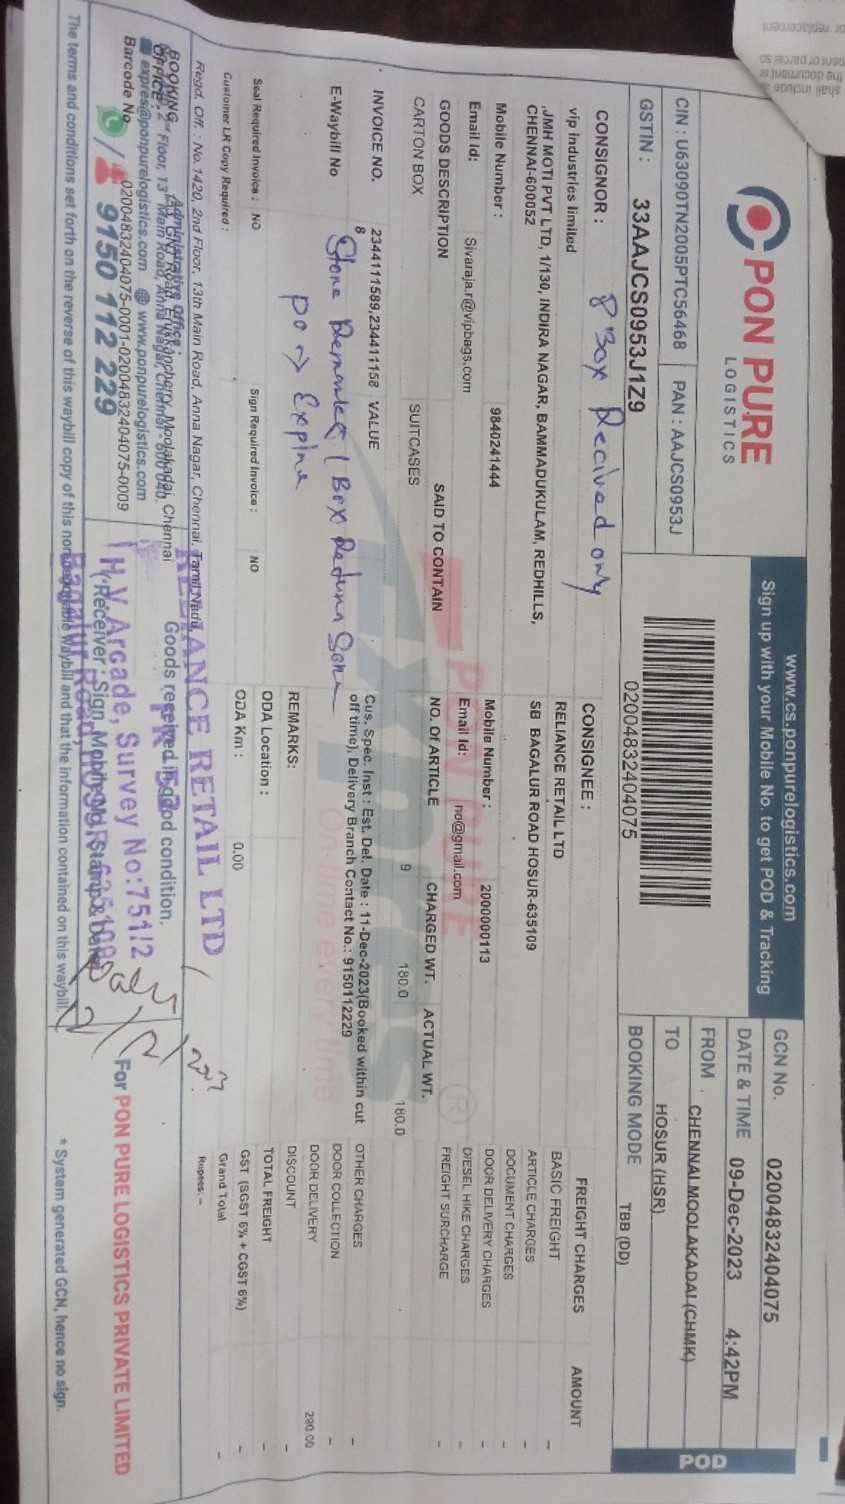 PON PURE
LOGISTICS
www.cs.ponpurelogistics.com
Sign up with your Mobile No. to get POD & Tracking
GCN No. 02004832404075
DATE & TIME 09-Dec-2023 4:42PM
FROM CHENNAI MOOLAKADAI (CHMK)
TO HOSUR (HSR)
BOOKING MODE TBB (DD)
POD
CIN : U63090TN2005PTC56468 PAN : AAJCS0953J
GSTIN : 33AAJCS0953J1Z9
02004832404075
CONSIGNOR :
8 Box Recived only
vip industries limited
,JMH MOTI PVT LTD, 1/130, INDIRA NAGAR, BAMMADUKULAM, REDHILLS,
CHENNAI-600052
Mobile Number : 9840241444
Email Id: Sivaraja.r@vipbags.com
CONSIGNEE :
RELIANCE RETAIL LTD
SB BAGALUR ROAD HOSUR-635109
Mobile Number : 2000000113
Email Id: no@gmail.com
GOODS DESCRIPTION SAID TO CONTAIN NO. Of ARTICLE CHARGED WT. ACTUAL WT.
CARTON BOX SUITCASES 9 180.0 180.0
INVOICE NO. 2344111589,234411158 VALUE
8
E-Waybill No
Store 1 Box Return
PO → Expire
Cus. Spec. Inst : Est. Del. Date : 11-Dec-2023(Booked within cut
off time), Delivery Branch Contact No.: 9150112229
REMARKS:
ODA Location :
ODA Km : 0.00
Seal Required Invoice : NO Sign Required Invoice : NO
Customer LR Copy Required :
FREIGHT CHARGES AMOUNT
BASIC FREIGHT -
ARTICLE CHARGES -
DOCUMENT CHARGES -
DOOR DELIVERY CHARGES -
DIESEL HIKE CHARGES -
FREIGHT SURCHARGE -
OTHER CHARGES -
DOOR COLLECTION -
DOOR DELIVERY 290.00
DISCOUNT -
TOTAL FREIGHT -
GST (SGST 6% + CGST 6%) -
Grand Total -
Rupees. --
Regd. Off. : No.1420, 2nd Floor, 13th Main Road, Anna Nagar, Chennai, Tamil Nadu
Administrative Office :
BOOKING
OFFICE:
Moolakadai, Chennai
expres@ponpurelogistics.com www.ponpurelogistics.com
Barcode No 02004832404075-0001-02004832404075-0009
9150 112 229
Goods received in good condition.
RELIANCE RETAIL LTD
H.V Arcade, Survey No:751/2
Bagalur Road,
Receiver : Sign, Mobile No, Stamp & Date
For PON PURE LOGISTICS PRIVATE LIMITED
The terms and conditions set forth on the reverse of this waybill copy of this non negotiable Waybill and that the information contained on this waybill
* System generated GCN, hence no sign.
PON PURE
Expres
On time every time
or replacement
the document
shall include